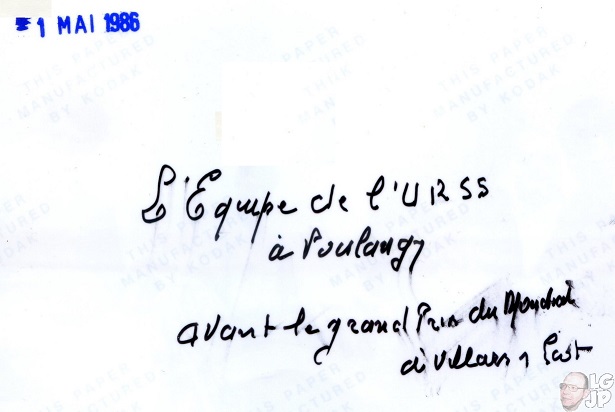 1 MAI 1986
THIS PAPER
MANUFACTURED
BY KODAK
L'Equipe de l'URSS
à Poulangy
avant le grand Prix du Mondial
à Villars
LG
JP